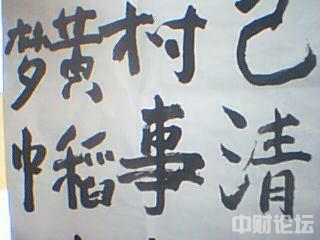 己清
村事
黄稻
梦
中财论坛